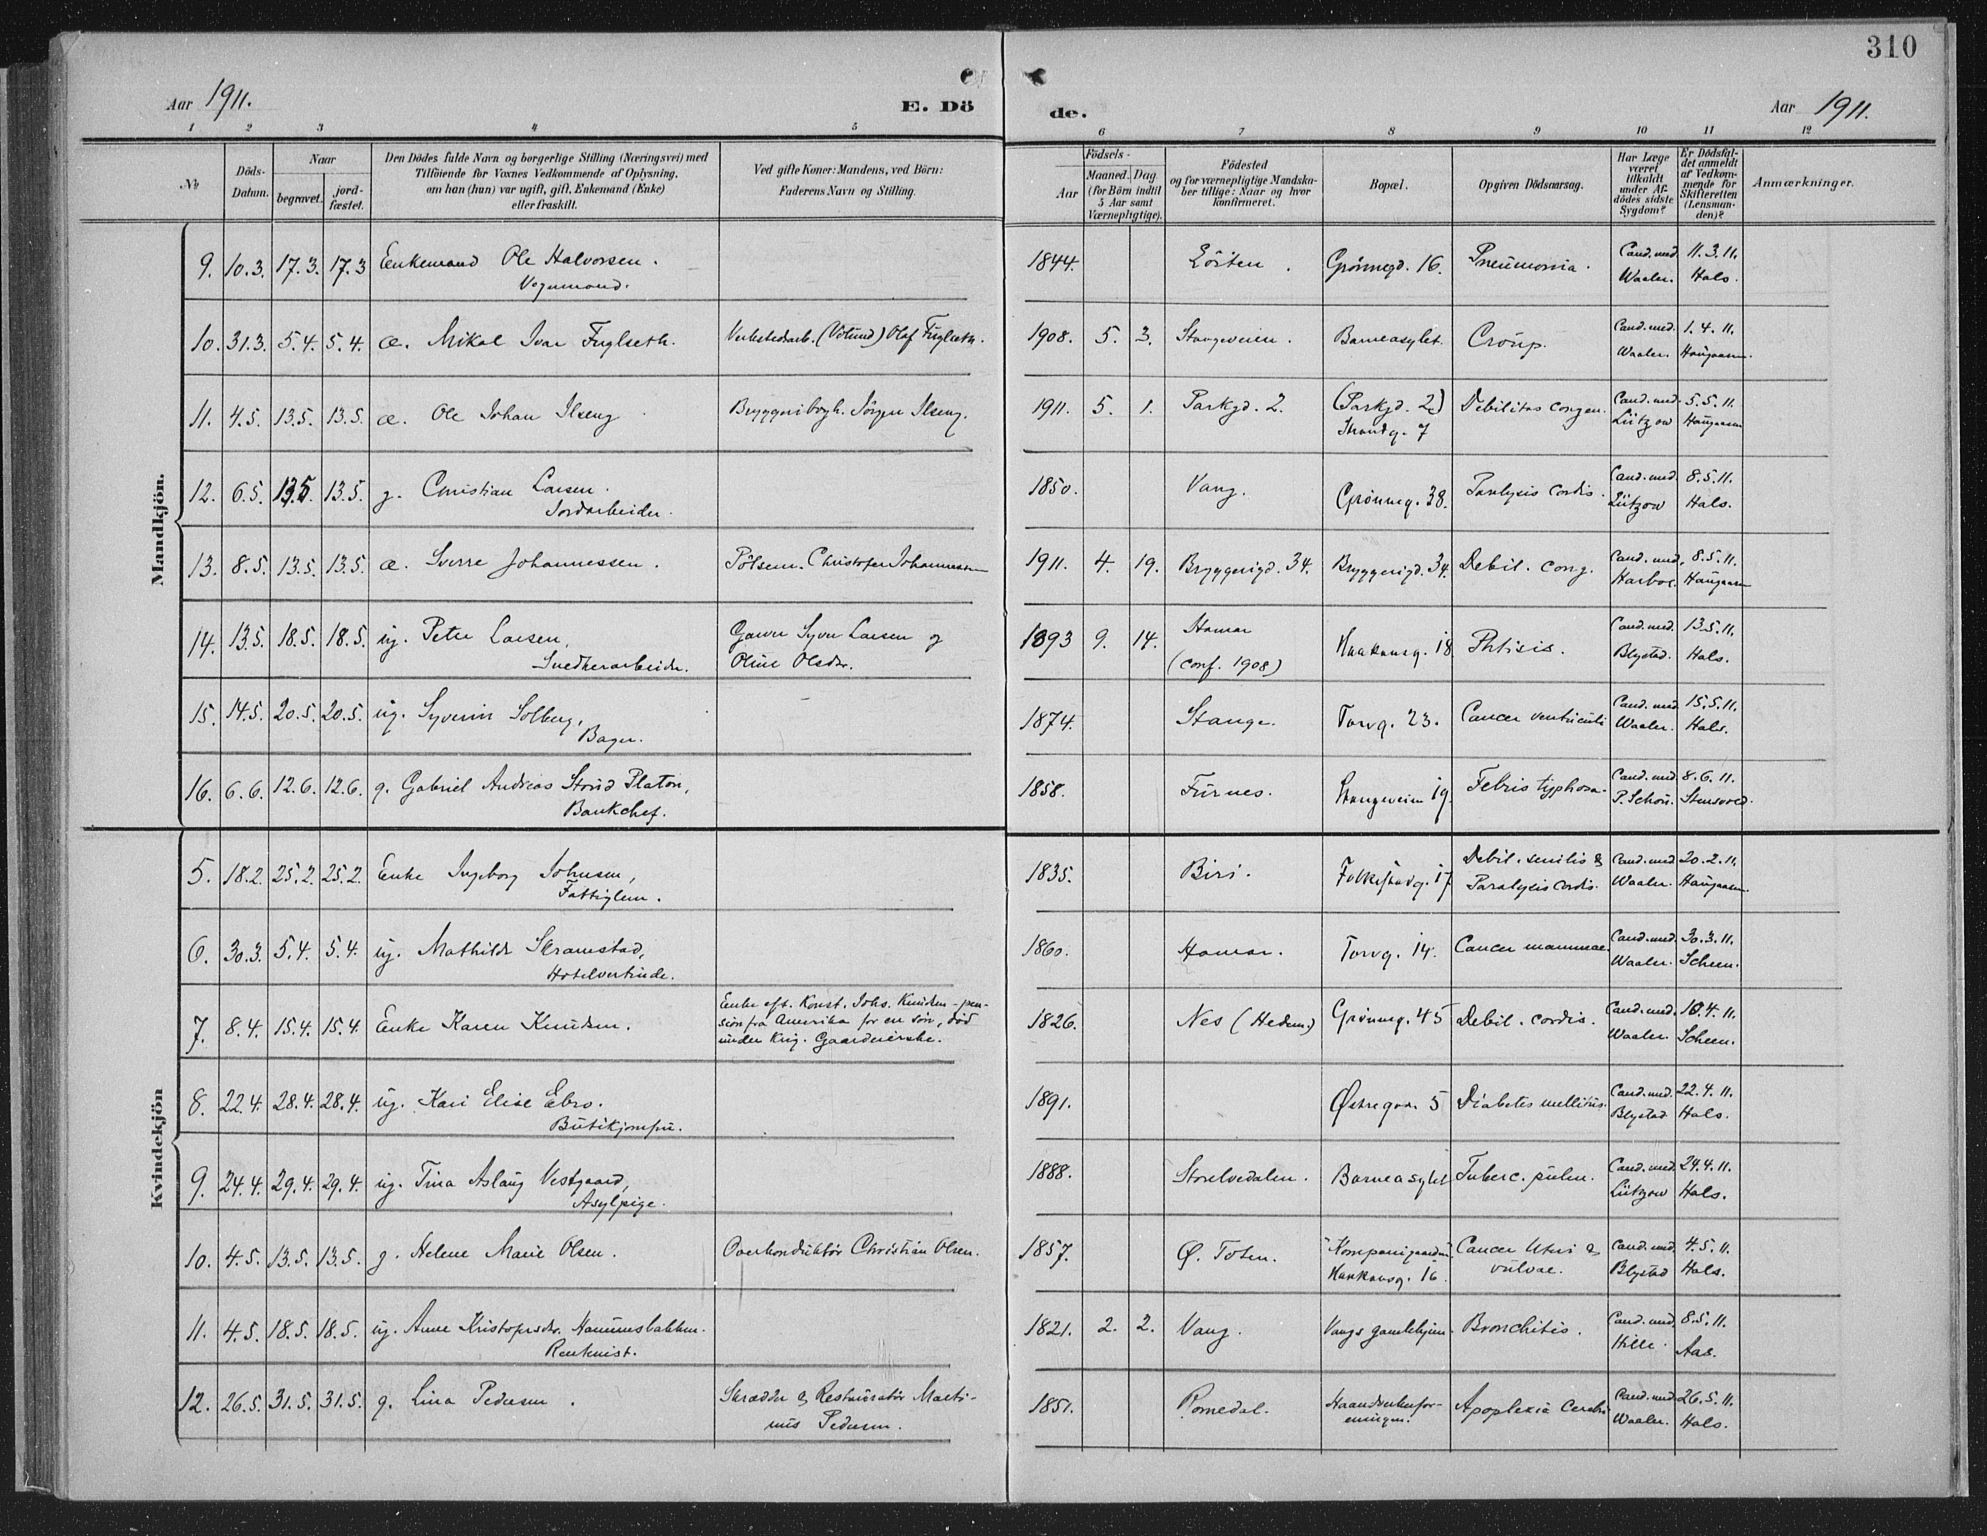 310
Aar 1911.
E. Dö
de.
Aar 1911.
1 2 3 4 5 6 7 8 9 10 11 12
No
Döds-
Datum.
Naar
begravet.
jord-
fæstet.
Den Dödes fulde Navn og borgerlige Stilling (Næringsvei) med
Tilföiende for Voxnes Vedkommende af Oplysning,
om han (hun) var ugift, gift, Enkemand (Enke)
eller fraskilt.
Ved gifte Koner: Mandens, ved Börn:
Faderens Navn og Stilling.
Födsels-
Aar
Maaned.
Dag
(for Börn indtil
5 Aar samt
Værnepligtige).
Födested
og for værnepligtige Mandska-
ber tillige: Naar og hvor
konfirmeret.
Bopæl.
Opgiven Dödsaarsag.
Har Læge
været
tilkaldt
under Af-
dödes sidste
Sygdom?
Er Dödsfal-
det anmeldt
af Vedkom-
mende for
Skifteretten
(Lensman-
den)?
Anmærkninger.
Mandkjön.
9. 10.3. 17.3. 17.3 Enkemand Ole Halvorsen. 1844. Löiten. Grönnegd. 16. Pneumonia. Cand. med 11.3.11.
Vognmand. Waaler. Hals.
10. 31.3. 5.4. 5.4. æ. Mikal Ivar Fuglseth. Verkstedarb. (Völund) Olaf Fuglseth. 1908. 5. 3. Stangeveien. Barneasylet. Croup. Cand. med. 1.4.11.
Waaler. Haugaasen.
11. 4.5. 13.5. 13.5. æ. Ole Johan Ilseng Bryggeribogh. Jörgen Ilseng. 1911. 5. 1. Parkgd. 2. (Parkgd. 2) Debilitas congen. Cand. med 5.5.11.
Strandg. 7 Lützow Haugaasen
12. 6.5. 13.5. 13.5. g. Christian Larsen. 1850. Vang. Grönneg. 38. Paralysis cordis. Cand. med. 8.5.11.
Jordarbeider. Lützow Hals.
13. 8.5. 13.5. 13.5. æ. Sverre Johannessen. Pölsem. Christofer Johannessen 1911. 4. 19. Bryggerigd. 34. Bryggerigd. 34. Debil. cong. Cand. med. 8.5.11.
Harboe. Haugaasen
14. 13.5. 18.5. 18.5. ug. Peter Larsen, Garver Syver Larsen og 1893 9. 14. Hamar Haakonsg. 18 Phtisis. Cand. med. 13.5.11.
Snedkerarbeider. Oline Olsdr. (conf. 1908) Blystad. Hals.
15. 14.5. 20.5. 20.5. ug. Syverin Solberg, 1874. Stange. Torvg. 23. Cancer ventriculi Cand. med 15.5.11.
Bager. Waaler. Hals.
16. 6.6. 12.6. 12.6. g. Gabriel Andreas Stoud Platou, 1858. Furnes. Stangeveien 19. Febris typhosa. Cand. med 8.6.11.
Bankchef. P. Schou. Stensvold.
Kvindekjön
5. 18.2. 25.2. 25.2. Enke Ingeborg Johnsen, 1835. Biri. Folkestadg. 17 Debil. senilis & Cand. med 20.2.11.
Fattiglem. Paralysis cordis. Waaler. Haugaasen.
6. 30.3. 5.4. 5.4. ug. Mathilde Skramstad, 1860. Hamar. Torvg. 14. Cancer mammae. Cand. med. 30.3.11.
Hotelvertinde. Waaler. Scheen.
7. 8.4. 15.4. 15.4. Enke Karen Knudsen. Enke eft. Konst. Johs. Knudsen - pen- 1826. Nes (Hedem.) Grönneg. 45 Debil. cordis. Cand. med. 10.4.11.
sion fra Amerika for en sön, död Waaler. Scheen.
under krig. Gaardeierske.
8. 22.4. 28.4. 28.4. ug. Kari Elise Ebro. 1891. Østregd. 5 Diabetes mellitus. Cand. med. 22.4.11.
Butikjomfru. Blystad Hals.
9. 24.4. 29.4. 29.4. ug. Tina Aslaug Vestgaard, 1888. Storelvedalen. Barneasylet Tuberc. pulm. Cand. med. 24.4.11.
Asylpige. Lützow Hals.
10. 4.5. 13.5. 13.5. g. Helene Marie Olsen. Overkonduktör Christian Olsen. 1857. Ø. Toten. "Kompanigaarden" Cancer Uteri & Cand. med. 4.5.11.
Haakonsg. 16. vulvae. Blystad Hals.
11. 4.5. 18.5. 18.5. ug. Anne Kristofersdr. Hammesbakken. 1821. 2. 2. Vang. Vangs gamlehjem. Bronchitis. Cand. med. 8.5.11.
Rentenist. Hille. Aas.
12. 26.5. 31.5. 31.5. g. Lina Pedersen. Skrædder & Restauratör Marti- 1851. Romedal. Haandverkerfor- Apoplexia cerebri Cand. med 26.5.11.
nus Pedersen. eningen. Waaler. Hals.